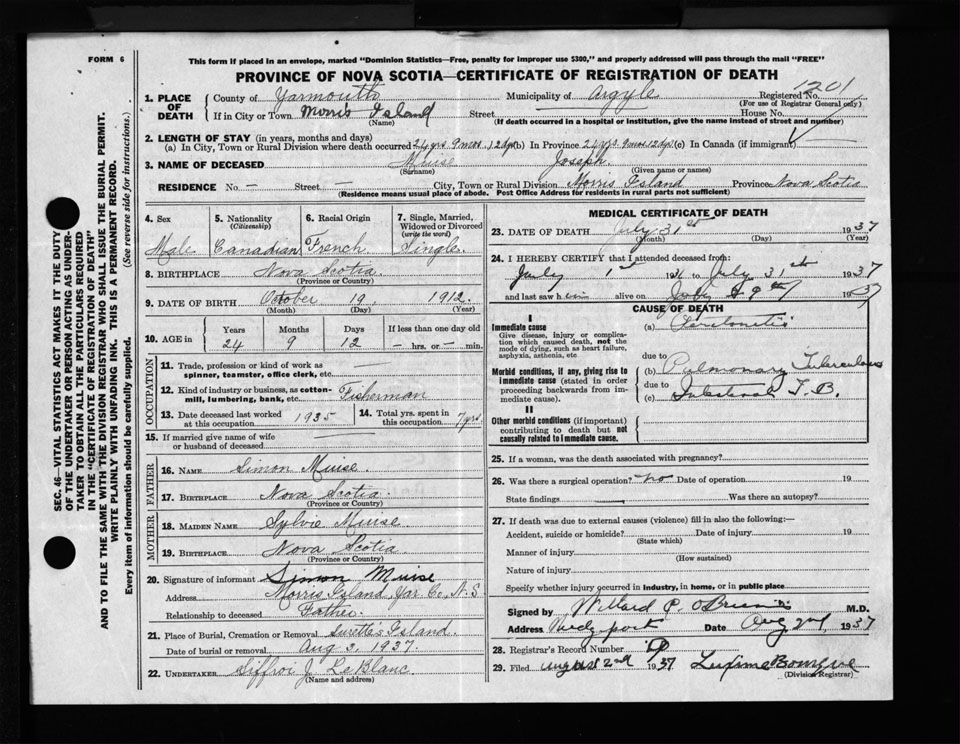 FORM 6
This form if placed in an envelope, marked "Dominion Statistics—Free, penalty for improper use $300," and properly addressed will pass through the mail "FREE"
PROVINCE OF NOVA SCOTIA—CERTIFICATE OF REGISTRATION OF DEATH
1201
1. PLACE OF DEATH
County of Yarmouth Municipality of Argyle Registered No.
(For use of Registrar General only)
If in City or Town Morris Island Street House No.
(Name) (If death occurred in a hospital or institution, give the name instead of street and number)
2. LENGTH OF STAY (in years, months and days)
(a) In City, Town or Rural Division where death occurred 24 yrs 9 mos 12 dys (b) In Province 24 yrs 9 mos 12 dys (c) In Canada (if immigrant)
3. NAME OF DECEASED Muise Joseph
(Surname) (Given name or names)
RESIDENCE No. — Street — City, Town or Rural Division Morris Island Province Nova Scotia
(Residence means usual place of abode. Post Office Address for residents in rural parts not sufficient)
SEC. 46—VITAL STATISTICS ACT MAKES IT THE DUTY
OF THE UNDERTAKER OR PERSON ACTING AS UNDER-
TAKER TO OBTAIN ALL THE PARTICULARS REQUIRED
IN THE "CERTIFICATE OF REGISTRATION OF DEATH"
AND TO FILE THE SAME WITH THE DIVISION REGISTRAR WHO SHALL ISSUE THE BURIAL PERMIT.
WRITE PLAINLY WITH UNFADING INK. THIS IS A PERMANENT RECORD.
Every item of information should be carefully supplied. (See reverse side for instructions.)
4. Sex
Male
5. Nationality
(Citizenship)
Canadian
6. Racial Origin
French
7. Single, Married, Widowed or Divorced
(write the word)
Single
8. BIRTHPLACE Nova Scotia
(Province or Country)
9. DATE OF BIRTH October 19 1912
(Month) (Day) (Year)
10. AGE in
Years Months Days If less than one day old
24 9 12 — hrs. or — min.
OCCUPATION
11. Trade, profession or kind of work as
spinner, teamster, office clerk, etc. —
12. Kind of industry or business, as cotton-
mill, lumbering, bank, etc. Fisherman
13. Date deceased last worked
at this occupation 1935
14. Total yrs. spent in
this occupation 7 yrs.
15. If married give name of wife
or husband of deceased —
FATHER
16. NAME Simon Muise
17. BIRTHPLACE Nova Scotia
(Province or Country)
MOTHER
18. MAIDEN NAME Sylvie Muise
19. BIRTHPLACE Nova Scotia
(Province or Country)
20. Signature of informant Simon Muise
Address Morris Island, Yar. Co., N.S
Relationship to deceased Father
21. Place of Burial, Cremation or Removal Surette's Island.
Date of burial or removal Aug 3, 1937.
22. UNDERTAKER Siffroi J LeBlanc
(Name and address)
MEDICAL CERTIFICATE OF DEATH
23. DATE OF DEATH July 31st 1937
(Month) (Day) (Year)
24. I HEREBY CERTIFY that I attended deceased from:
July 1st 1936 to July 31st 1937
and last saw him alive on July 1937
CAUSE OF DEATH
I
Immediate cause
Give disease, injury or complica-
tion which caused death, not the
mode of dying, such as heart failure,
asphyxia, asthenia, etc
(a) Peritonitis
due to
Morbid conditions, if any, giving rise to
immediate cause (stated in order
proceeding backwards from im-
mediate cause).
(b) Pulmonary Tuberculosis
due to
(c) Intestinal T.B.
II
Other morbid conditions (if important)
contributing to death but not
causally related to immediate cause.
25. If a woman, was the death associated with pregnancy?
26. Was there a surgical operation? no Date of operation 19
State findings Was there an autopsy?
27. If death was due to external causes (violence) fill in also the following:—
Accident, suicide or homicide? Date of injury 19
(State which)
Manner of injury
(How sustained)
Nature of injury
Specify whether injury occurred in industry, in home, or in public place
Signed by Willard P. M.D.
Address Wedgeport Date Aug 2nd, 1937
28. Registrar's Record Number
29. Filed August 2nd 1937
(Division Registrar)